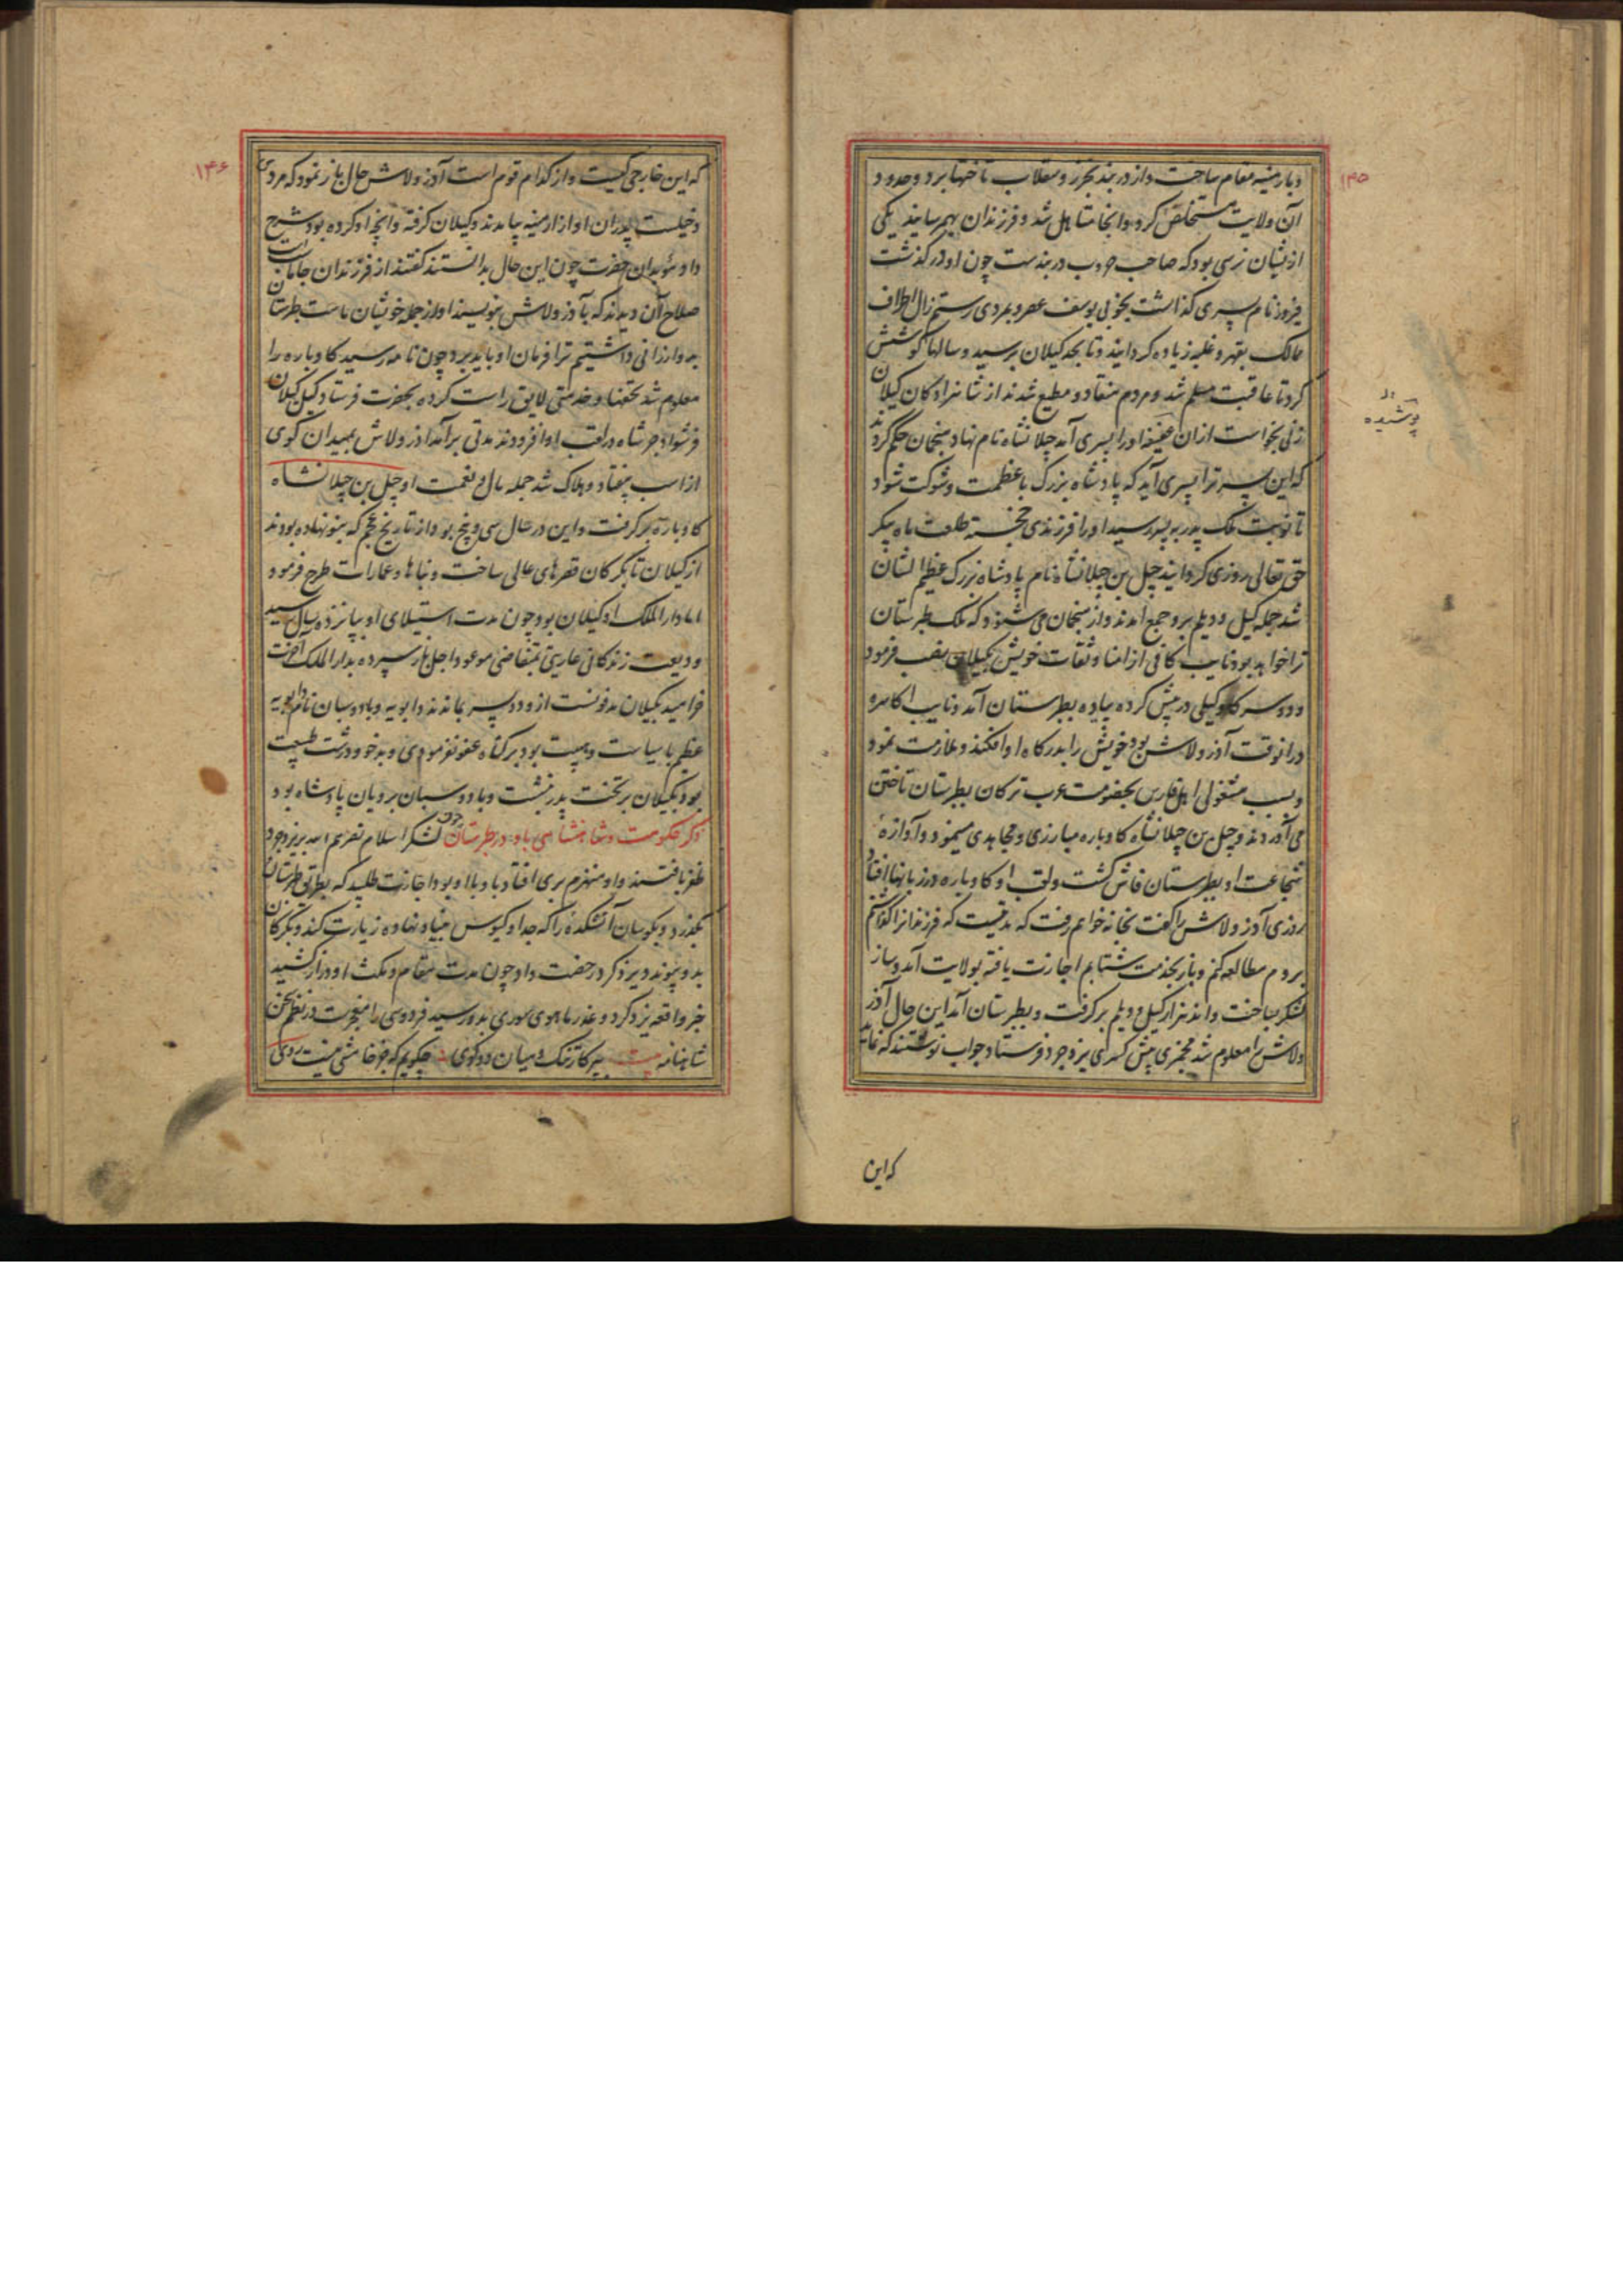 ۱۴۵
و بارمنیه مقام ساخت و از دربند بخزر و سقلاب تاختها برد و حدود
آن ولایت مستخلص کرد و آنجا متاهل شد و فرزندان بهم رسانید یکی
ازیشان نرسی بود که صاحب حروب دربندست چون او درگذشت
فیروز نام پسری گذاشت بخوبی یوسف عصر و بمردی رستم زال اطراف
ممالک بقهر و غلبه زیاده گردانید و تا بحد گیلان برسید و سالها کوشش
کرد تا عاقبت مسلم شد و مردم منقاد و مطیع شدند از شاهزادگان گیلان
زنی بخواست ازان عفیفه او را پسری آمد جیلانشاه نام نهاد و منجمان حکم کردند
که این پسر ترا پسری آید که پادشاه بزرگ با عظمت و شوکت شود
تا نوبت ملک پدر به پسر رسید او را فرزندی خجسته طلعت ماه پیکر
حق تعالی روزی گردانید جیل بن جیلانشاه نام پادشاه بزرگ عظیم الشان
شد جمله گیل و دیلم برو جمع آمدند و از منجمان می شنود که ملک طبرستان
ترا خواهد بود نایب کافی از امنا و ثقات خویش بگیلان نصب فرمود
و دو سر گاو گیلی در پیش کرده پیاده بطبرستان آمد و نایب اکاسره
درانوقت آذر ولاش بود خویش را بدرگاه او افکند و ملازمت نمود
و بسبب مشغولی اهل فارس بخصومت عرب ترکان بطبرستان تاختن
می آوردند و جیل بن جیلانشاه گاوباره مبارزی و مجاهدی مینمود و آوازه
شجاعت او بطبرستان فاش گشت و لقب او گاوباره در زبانها افتاد
روزی آذر ولاش را گفت بخانه خواهم رفت که مدتیست که فرزندانرا گذاشتم
بروم مطالعه کنم و باز بخدمت شتابم اجازت یافته بولایت آمد و ساز
لشکر بساخت و اند هزار گیل و دیلم برگرفت و بطبرستان آمد این حال آذر
ولاش را معلوم شد مجمزی پیش کسری یزدجرد فرستاد جواب نوشتند که
پوشیده
که این
۱۴۶
که این خارجی کیست و از کدام قوم است آذر ولاش حال باز نمود که مردی
دخیلست پدران او از ارمنیه بیامدند و گیلان گرفته و آنچه او کرده بود شرح
داد موبدان حضرت چون این حال بدانستند گفتند از فرزندان جاماسب است
صلاح آن دیدند که بآذر ولاش بنویسند او از جمله خویشان ماست طبرستان
بدو ارزانی داشتیم ترا فرمان او باید برد چون نامه رسید گاوباره را
معلوم شد تحفها و خدمتی لایق راست کرده بحضرت فرستاد گیل گیلان
فرشوادجرشاه در لقب او افزودند مدتی برآمد آذر ولاش بمیدان گوی
از اسب بیفتاد و هلاک شد جمله مال و نعمت او جیل بن جیلانشاه
گاوباره برگرفت و این در سال سی و پنج بود از تاریخ عجم که بنو نهاده بودند
از گیلان تا گرگان قصرهای عالی ساخت و بناها و عمارات طرح فرمود
اما دار الملک او گیلان بود چون مدت استیلای او بپانزده سال رسید
ودیعت زندگانی عاریتی بمتقاضی موعود اجل باز سپرده بدارالملک آخرت
خرامید بگیلان مدفونست ازو دو پسر بماندند دابویه و بادوسبان نام دابویه
عظیم با سیاست و هیبت بود بر گناه عفو نفرمودی و بدخو و درشت طبیعت
بود بگیلان بر تخت پدر نشست و بادوسبان برویان پادشاه بود
ذکر حکومت و شاهنشاهی باو در طبرستان چون لشکر اسلام نصرهم الله بر یزدجرد
ظفر یافتند و او منهزم بری افتاد باو با او بود اجازت طلبید که بطبرستان
بگذرد و بکوسان آتشکده را که جد او کیوس بنیاد نهاده زیارت کند و بگرگان
بدو پیوندد یزدگرد رخصت داد چون مدت مقام و مکث او دراز کشید
خبر واقعه یزدگرد و غدر ماهوی سوری بدو رسید فردوسی را
شاهنامه بیت ببیکار تنگ و میان دو کوی چگویم که جز خامشی نیست روی